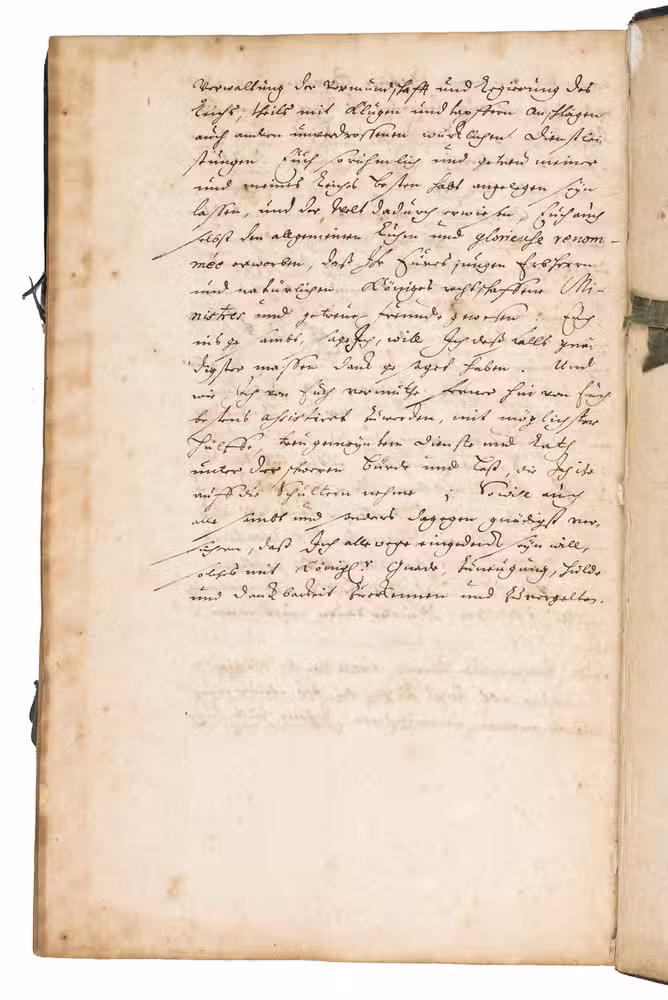 Verwaltung der Vormundschafft und Regierung des
Reichs, theils mit klugen und tapffern Anschlägen
auch andern unverdrossenen würcklichen Dienstlei-
stungen Euch so rühmlich und getreu meiner
und meines Reichs besten habt angelegen seyn
lassen, und der Welt dadurch erwiesen, Euch auch
selbst den allgemeinen Ruhm und glorieuse renom-
mée erworben, daß Ihr Eures jungen Erbherrn
und natürlichen Königes rechtschaffene Mi-
nistres und getreue Freunde gewesen: Euch
ins ge sambt, sage Ich, will Ich deß falls gnä-
digster massen danck ge saget haben. Und
wie Ich von Euch vermuthe, ferner hin von Euch
bestens assistiret zuwerden, mit möglichster
Hülffe, treugemeyntem Dienste und Rath
unter der schweren Bürde und Last, die Ich itzo
auff die Schultern nehme; So will auch
alle sambt und sonders dagegen gnädigst ver-
sichern, daß Ich allewege eingedenck seyn will,
solches mit Königl.r Gnade, Zuneigung, Hulde
und Danckbarkeit zuerkennen und zuvergelten.